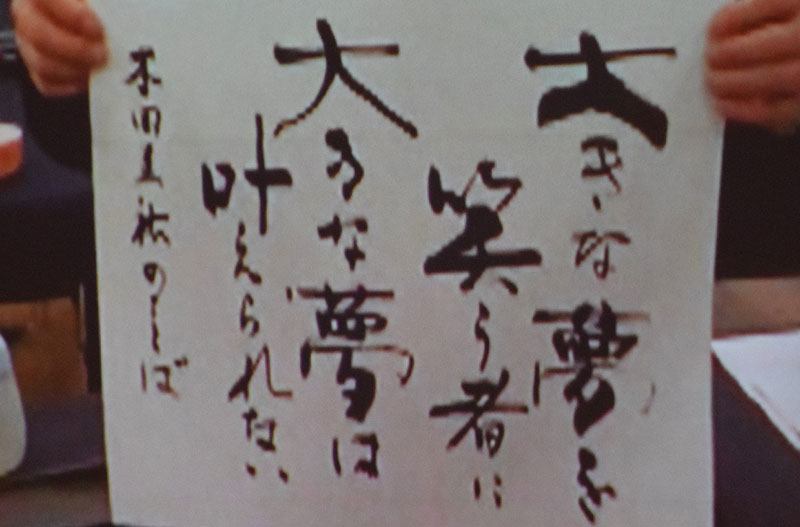 大きな夢を
笑う者に
大きな夢は
叶えられない
本田圭祐のことば